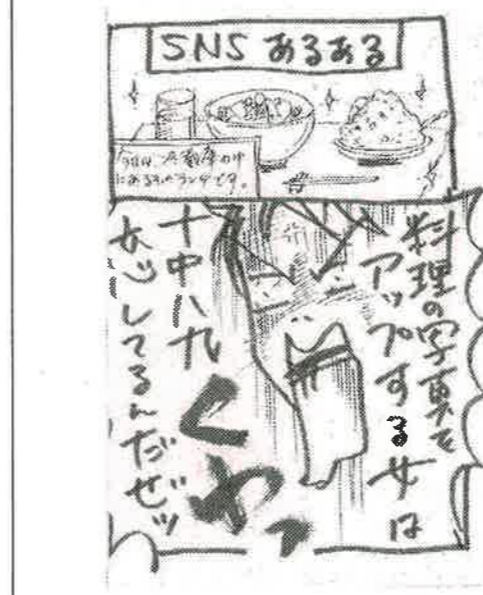 SNSあるある
今日は、冷蔵庫の中
にあるものでランチです。
料理の写真を
アップする女は
十中八九
恋してるんだぜッ
くわっ